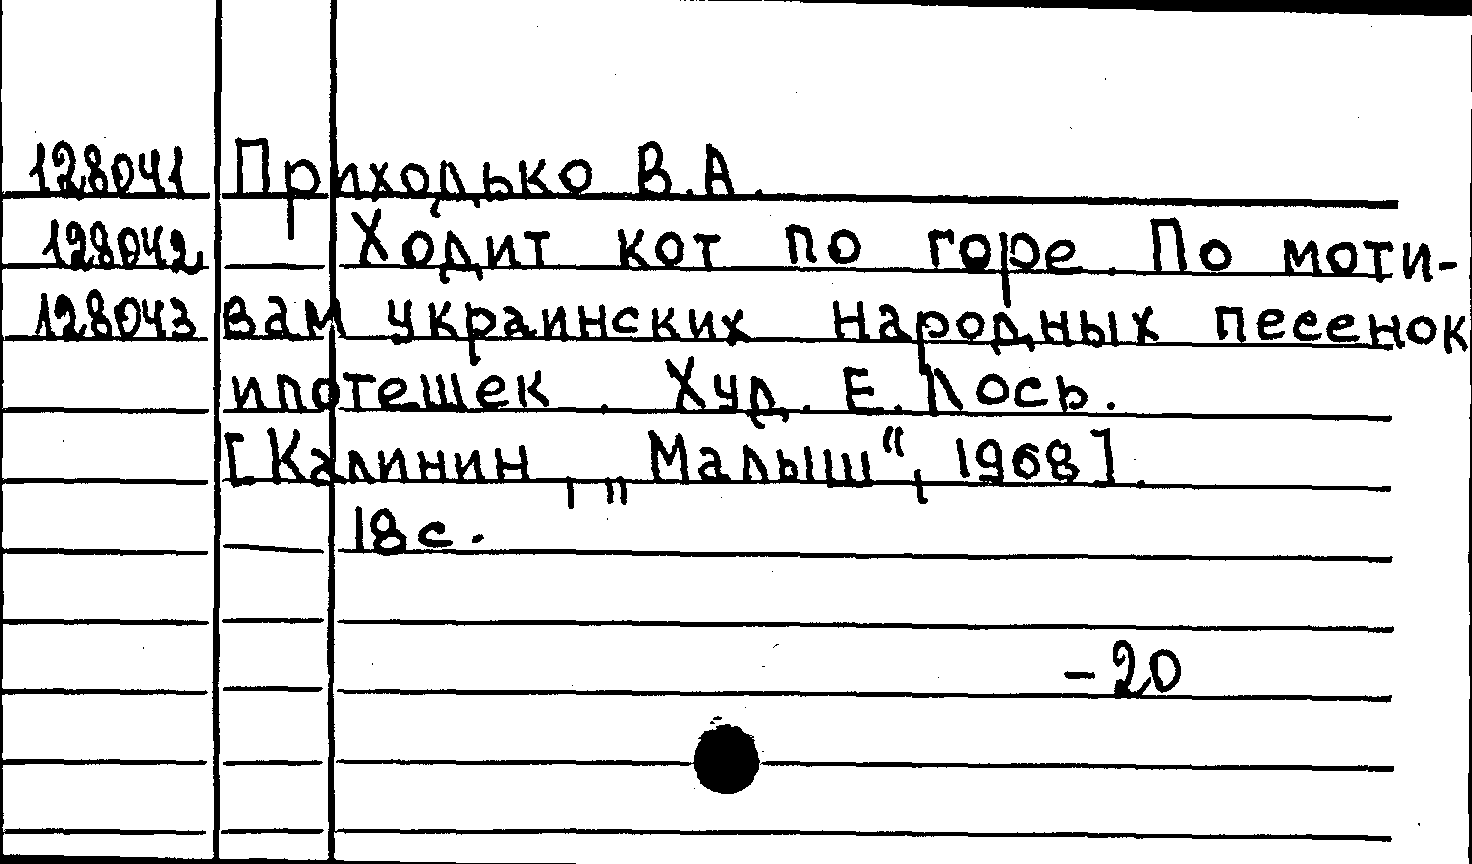 128041 Приходько В.А.
128042 Ходит кот по горе. По моти-
128043 вам украинских народных песенок
и потешек. Худ. Е. Лось.
[Калинин, „Малыш“, 1968].
18 с.
- 20